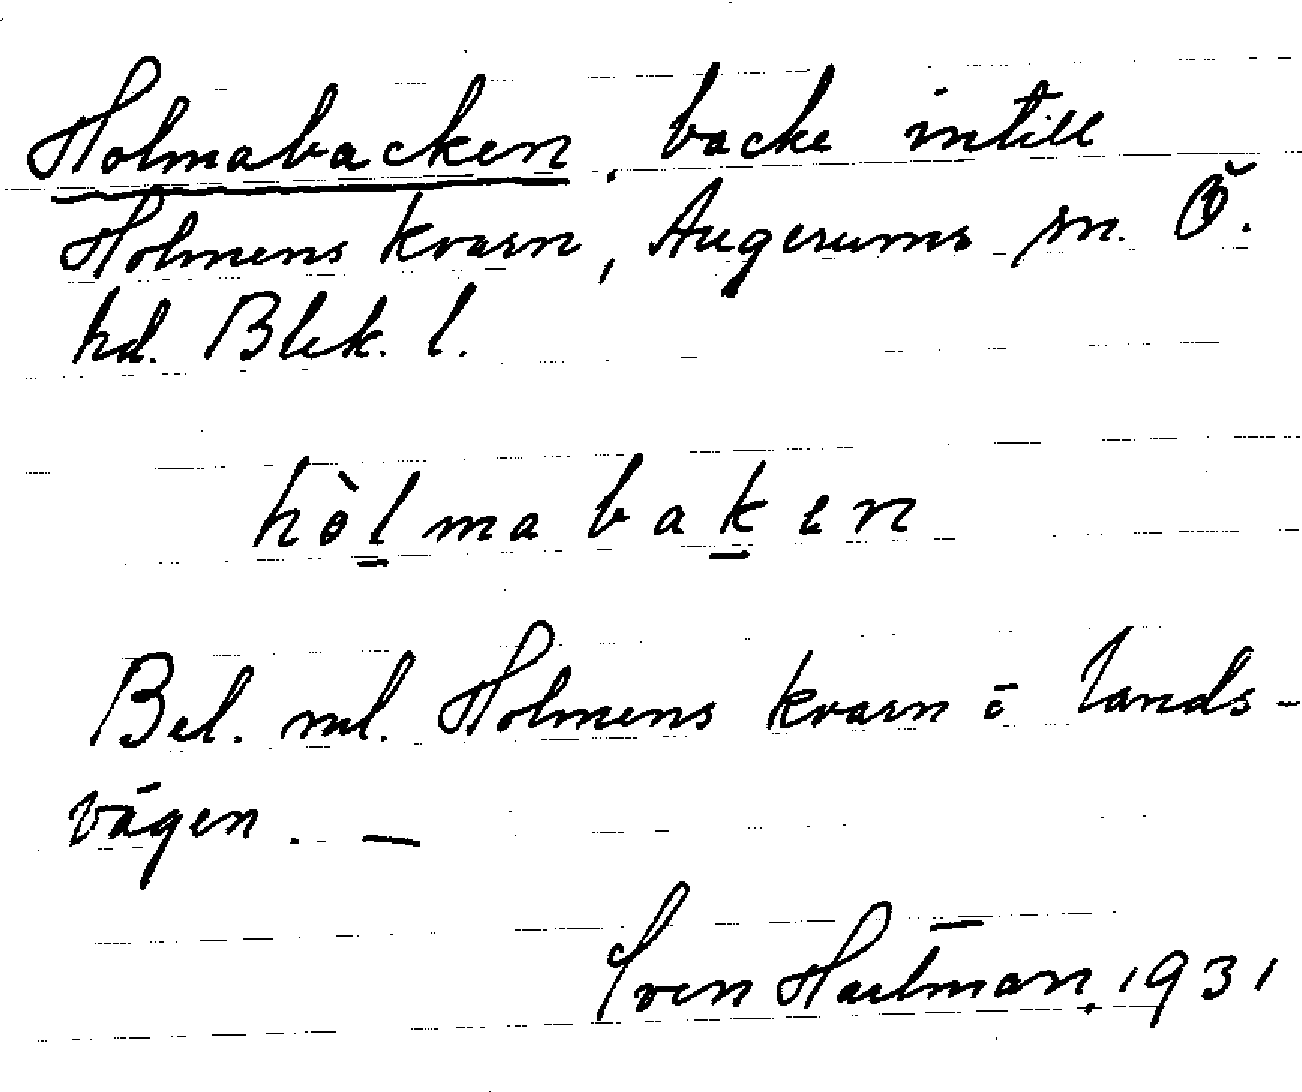 Holmabacken, backe intill
Holmens kvarn, Augerums sn. Ö.
hd. Blek. l.
hòlmabaken
Bel. ml. Holmens kvarn o lands-
vägen. —
Sven Hartman, 1931